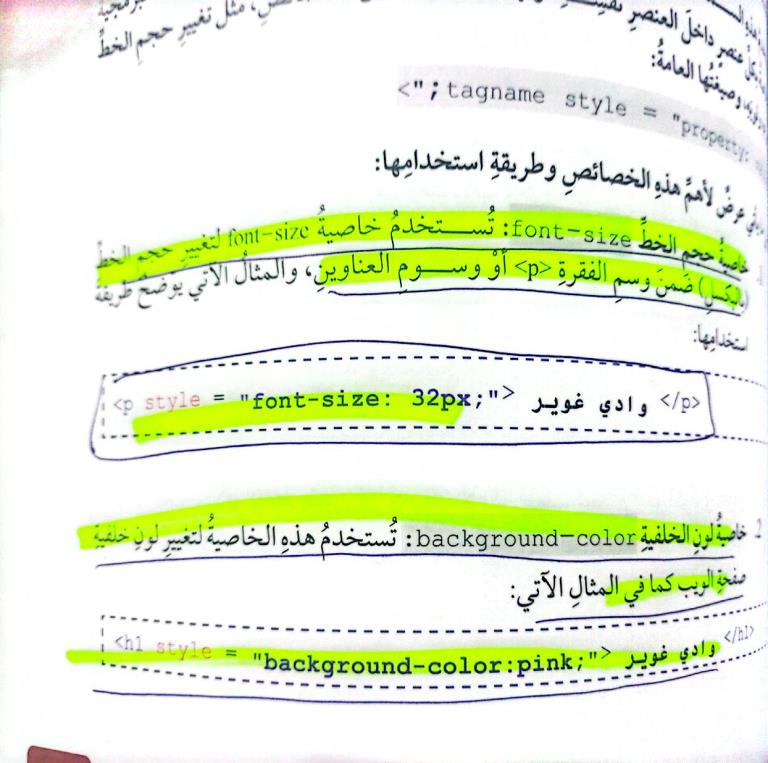 كل عنصر داخل العنصر
مثل تغيير حجم الخط
وصيغتُها العامةُ:
<";tagname style = "property:
عرضٌ لأهمِّ هذهِ الخصائصِ وطريقةِ استخدامِها:
خاصيةُ حجمِ الخطِّ font-size: تُستخدمُ خاصيةُ font-size لتغييرِ حجمِ الخطِّ
(بالبكسلِ) ضَمنَ وسمِ الفقرةِ <p> أوْ وسومِ العناوينِ، والمثالُ الآتي يوضحُ طريقةَ
استخدامِها:
<p style = "font-size: 32px;"> وادي غوير </p>
2. خاصيةُ لونِ الخلفيةِ background-color: تُستخدمُ هذهِ الخاصيةُ لتغييرِ لونِ خلفيةِ
صفحةِ الويبِ كما في المثالِ الآتي:
<h1 style = "background-color:pink;"> وادي غوير </h1>